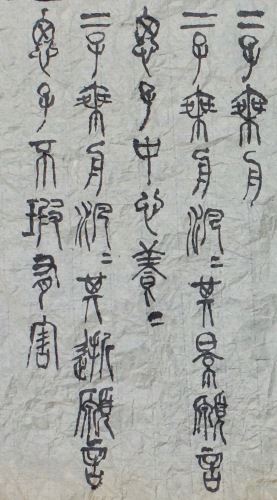 二子乘舟
二子乘舟汎〻其景願言
思子中心養〻
二子乘舟汎〻其逝願言
思子不瑕有害